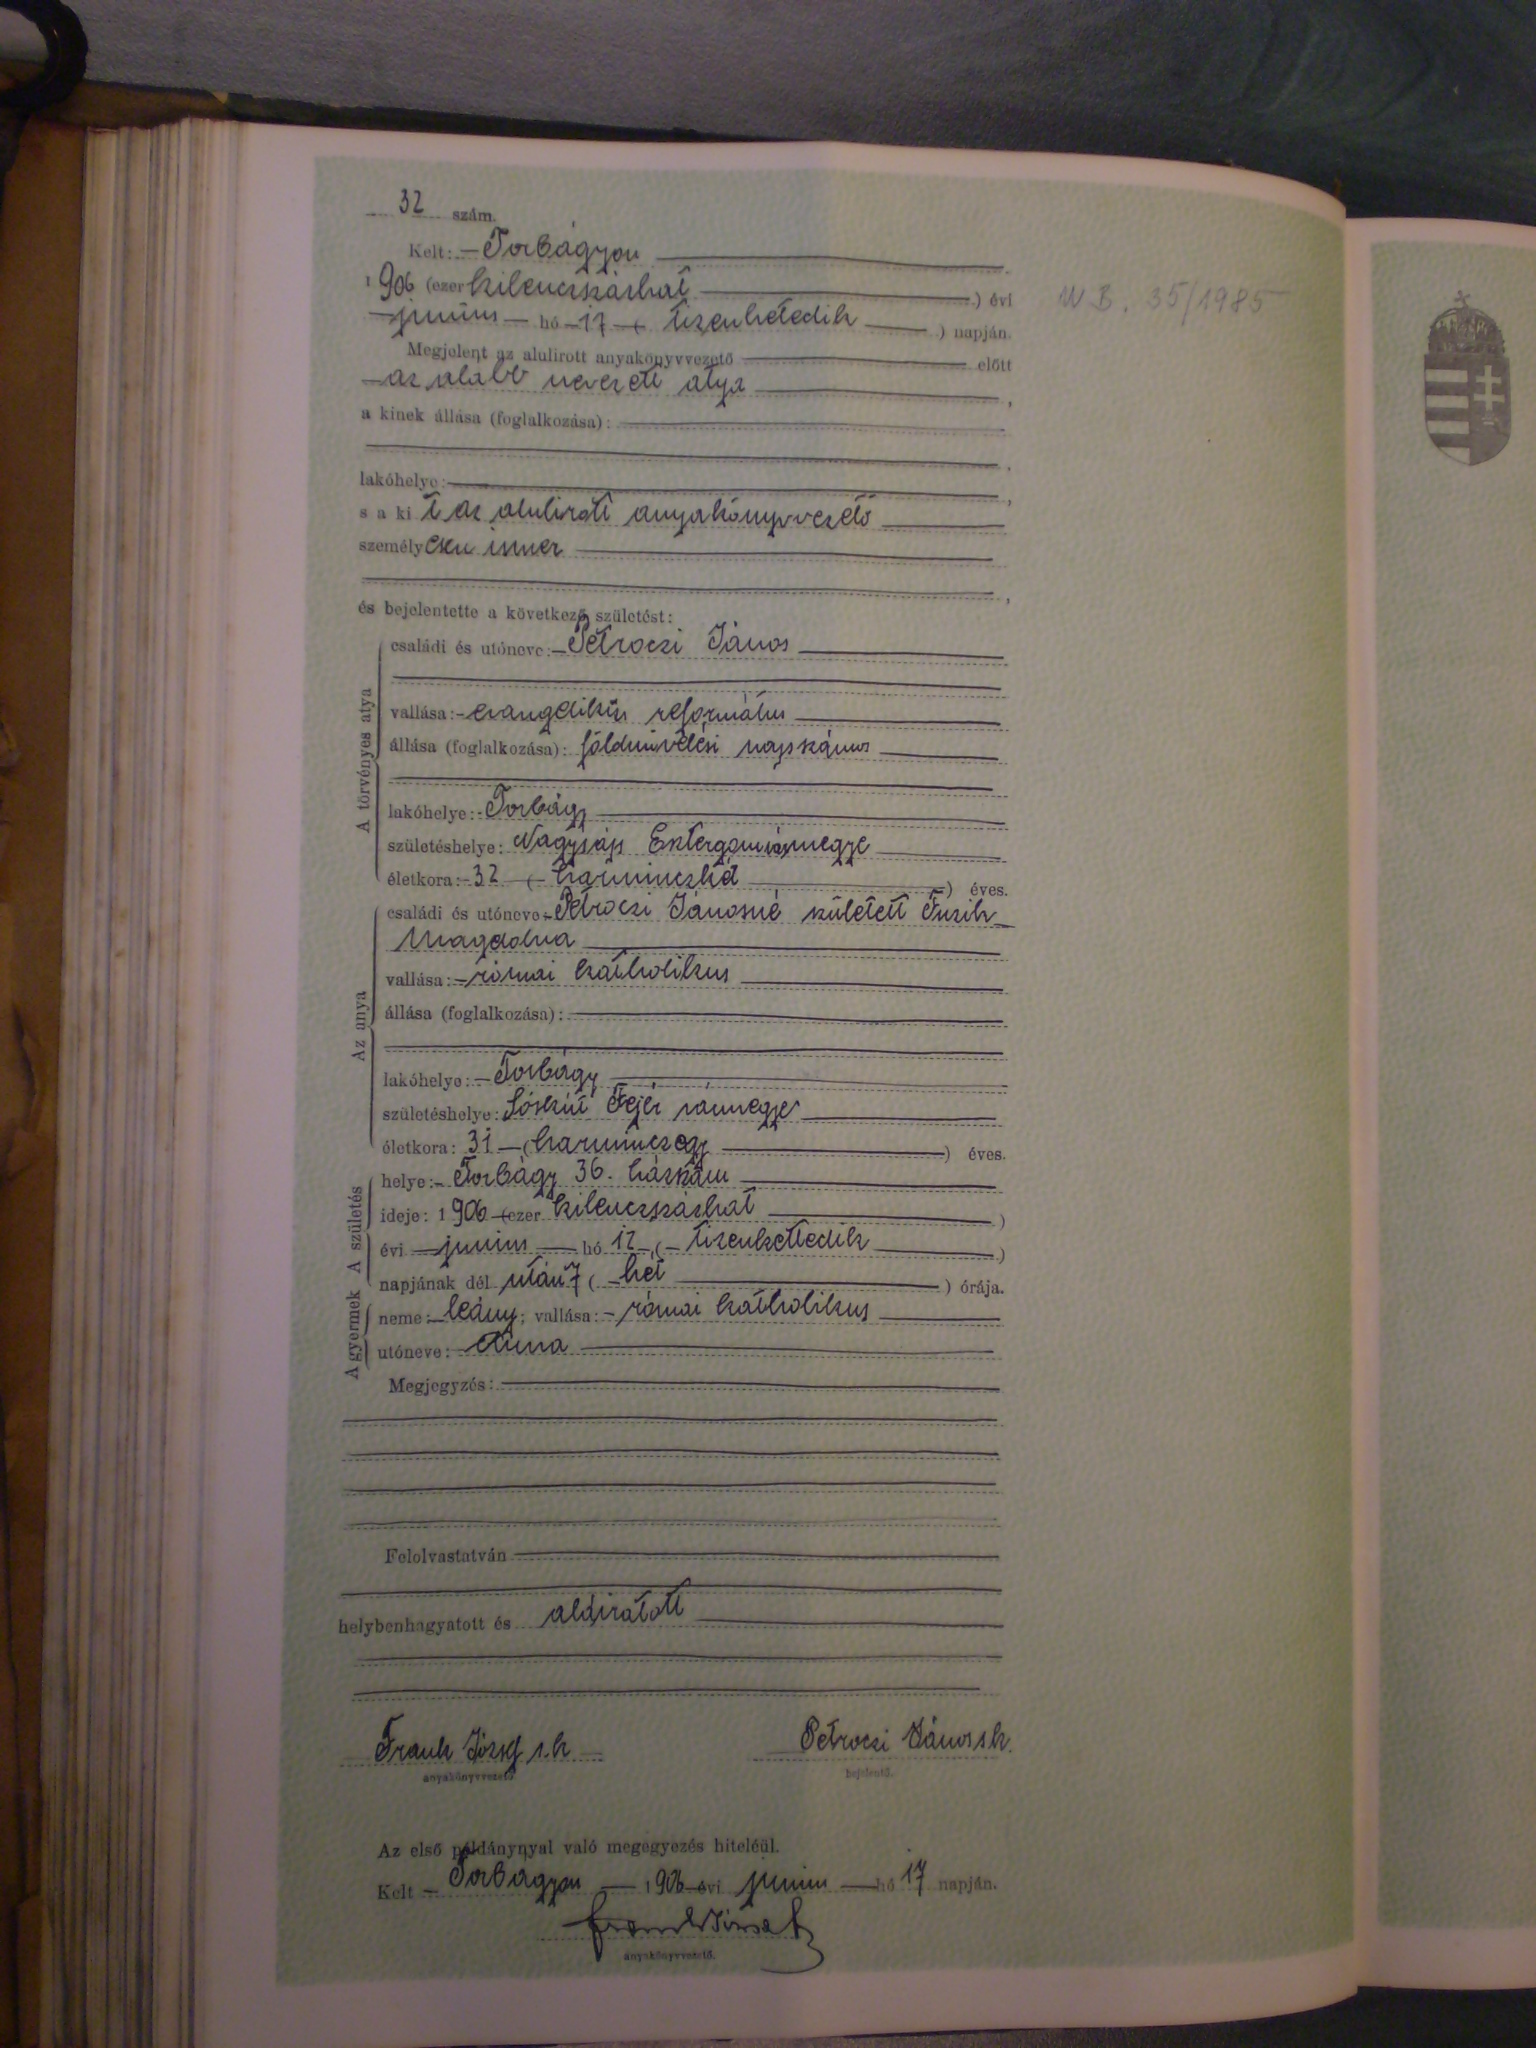 32 szám.
Kelt: Torbágyon
1906 (ezer kilenczszázhat) évi W B. 35/1985
junius hó 17 (tizenhetedik) napján.
Megjelent az alulirott anyakönyvvezető előtt
az alább nevezett atya,
a kinek állása (foglalkozása):
lakóhelye:
s a kit az alulirott anyakönyvvezető
személyesen ismer
és bejelentette a következő születést:
A törvényes atya
családi és utóneve: Petroczi János
vallása: evangelikus református
állása (foglalkozása): földmüvelési napszámos
lakóhelye: Torbágy
születéshelye: Nagysáp Esztergommegye
életkora: 32 (harminczkét) éves.
Az anya
családi és utóneve: Petroczi Jánosné született
Magdolna
vallása: római katholikus
állása (foglalkozása):
lakóhelye: Torbágy
születéshelye: Sóskút Fejér vármegye
életkora: 31 (harminczegy) éves.
A születés
helye: Torbágy 36. házszám
ideje: 1906 (ezer kilenczszázhat)
évi junius hó 12 (tizenkettedik)
napjának dél után 7 (hét) órája.
A gyermek
neme: leány; vallása: római katholikus
utóneve: Anna
Megjegyzés:
Felolvastatván
helybenhagyatott és aláiratott
Frank József s.k. Petroczi János s.k.
anyakönyvvezető bejelentő.
Az első példánynyal való megegyezés hiteléül.
Kelt Torbágyon 1906 évi junius hó 17 napján.
Frank József
anyakönyvvezető.